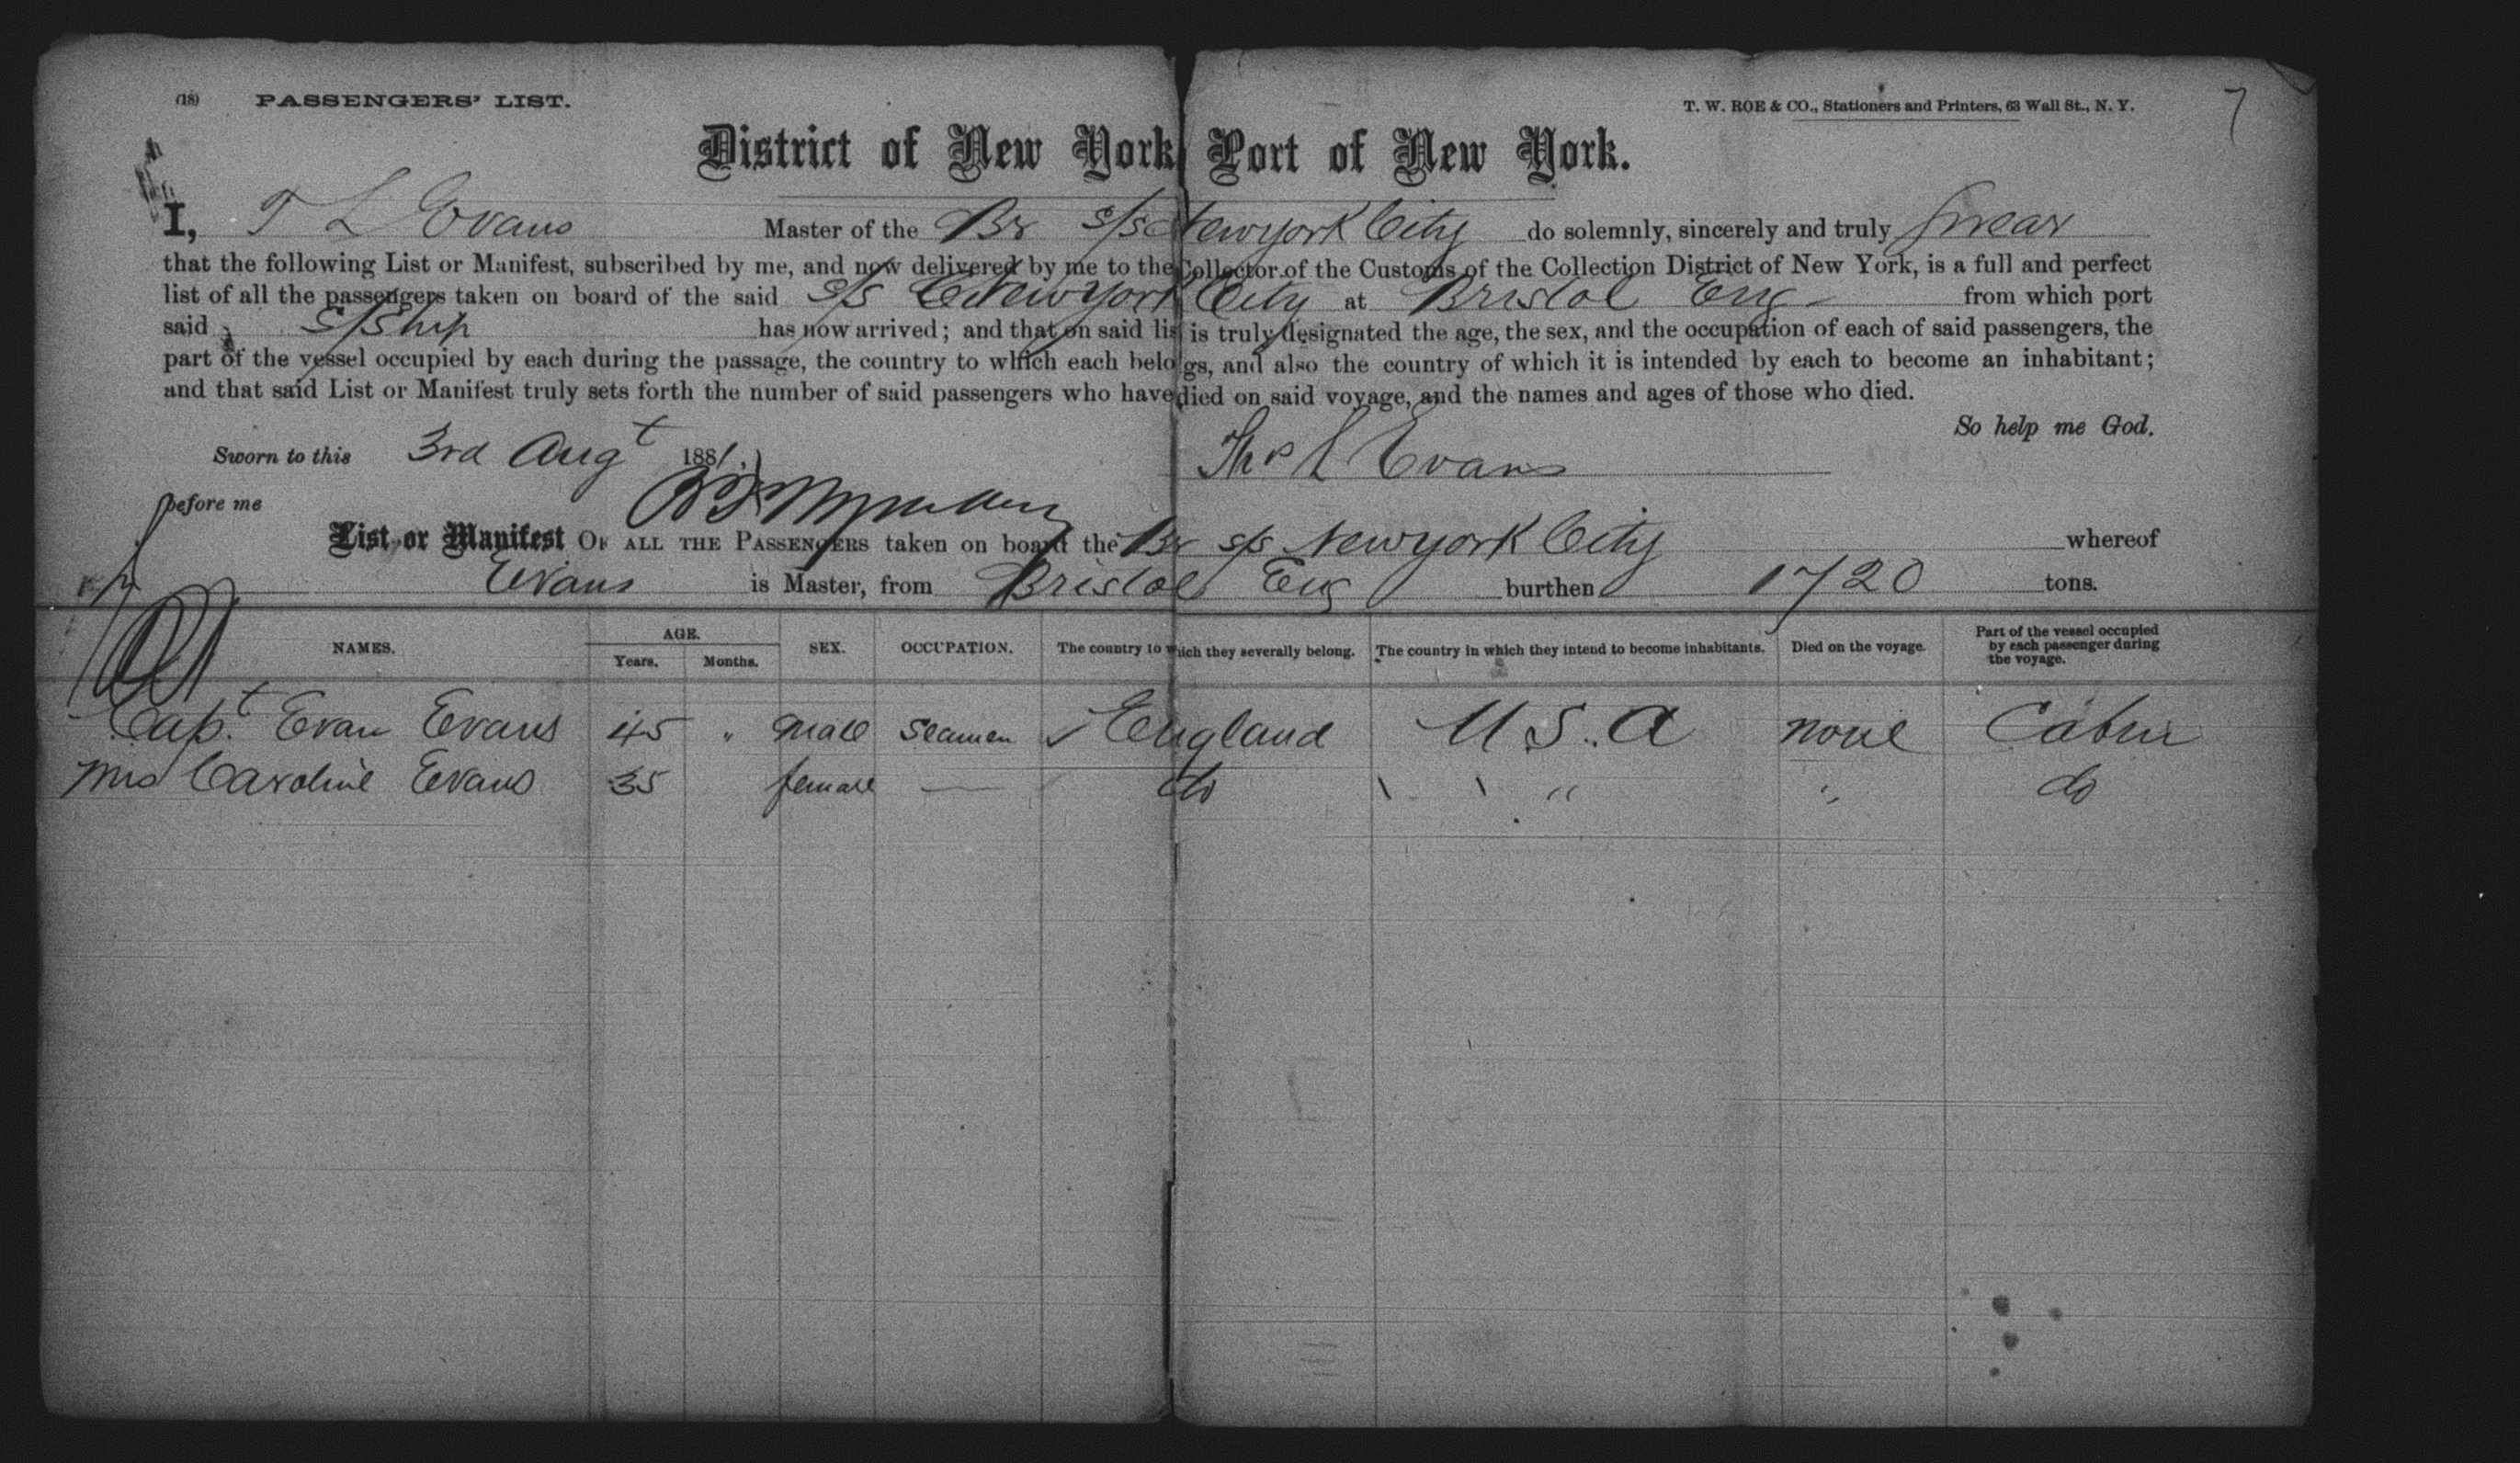 (18) PASSENGERS' LIST. T. W. ROE & CO., Stationers and Printers, 63 Wall St., N. Y. 7
District of New York Port of New York.
I, T L Evans Master of the Br s/s Newyork City do solemnly, sincerely and truly swear
that the following List or Manifest, subscribed by me, and now delivered by me to the Collector of the Customs of the Collection District of New York, is a full and perfect
list of all the passengers taken on board of the said s/s Newyork City at Bristol Eng from which port
said s/ship has now arrived; and that on said lis is truly designated the age, the sex, and the occupation of each of said passengers, the
part of the vessel occupied by each during the passage, the country to which each belo gs, and also the country of which it is intended by each to become an inhabitant;
and that said List or Manifest truly sets forth the number of said passengers who have died on said voyage, and the names and ages of those who died.
So help me God.
Sworn to this 3rd Augt 1881. Thos L Evans
before me
List or Manifest OF ALL THE PASSENGERS taken on board the Br s/s Newyork City whereof
Evans is Master, from Bristol Eng burthen 1720 tons.
NAMES. AGE. Years. Months. SEX. OCCUPATION. The country to which they severally belong. The country in which they intend to become inhabitants. Died on the voyage. Part of the vessel occupied by each passenger during the voyage.
Capt. Evan Evans 45 " male Seamen ✓ England U S. A none Cabin
Mrs Caroline Evans 35 female — do " " " " do